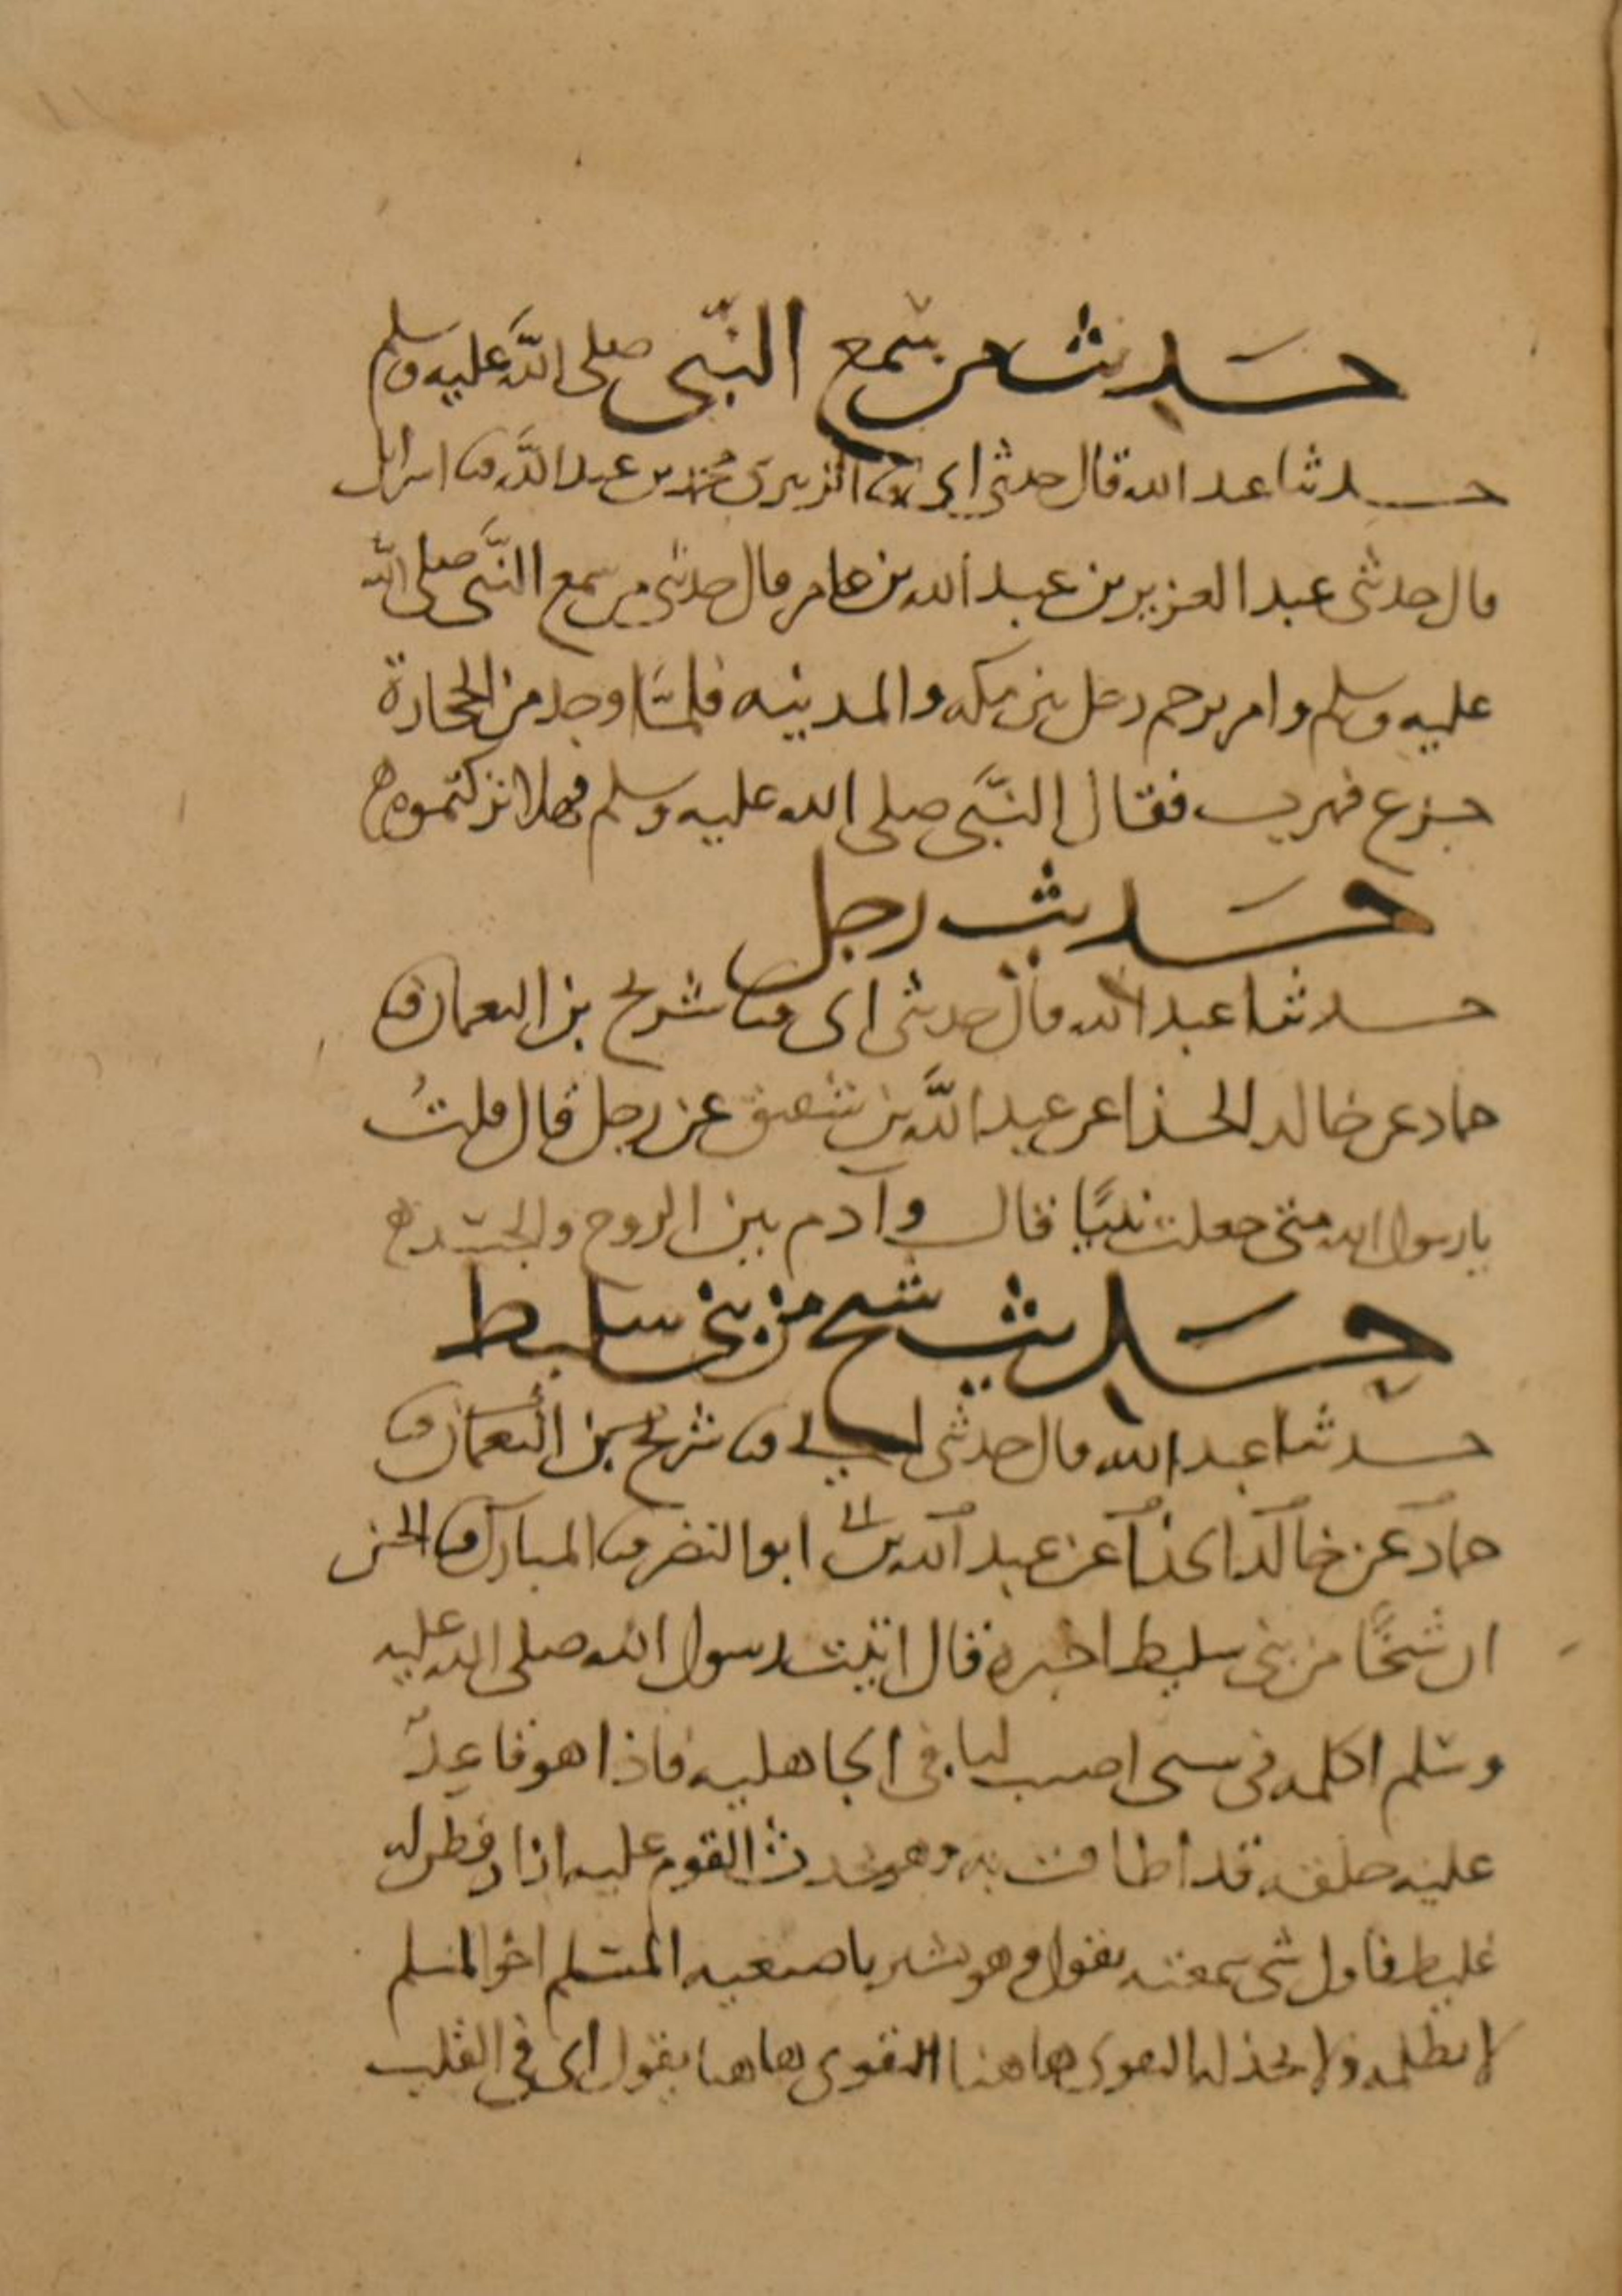 حديث من سمع النبي صلى الله عليه وسلم
حدثنا عبد الله قال حدثني ابي ثنا الزبيرى محمد بن عبد الله ثنا اسرائل
قال حدثنى عبد العزيز بن عبد الله بن عامر قال حدثنى من سمع النبى صلى الله
عليه وسلم وامر برجم رجل بين مكه والمدينه فلما وجد من الحجارة
جزع فهرب فقال النبى صلى الله عليه وسلم فهلا تركتموه
حديث رجل
حدثنا عبد الله قال حدثنى ابى ثنا شريح بن النعمان ثنا
حماد عن خالد الحذا عن عبد الله بن شقيق عن رجل قال قلت
يا رسول الله متى جعلت نبيا قال وآدم بين الروح والجسد
حديث شيخ من بنى سليط
حدثنا عبد الله قال حدثنى ابى ثنا شريح بن النعمان ثنا
حماد عن خالد الحذا عن عبد الله بن ابو النضر ثنا المبارك ثنا الحسن
ان شيخا من بنى سليط اخبره قال اتيت رسول الله صلى الله عليه
وسلم اكلمه فى سبى اصيب لنا فى الجاهليه فاذا هو قاعد
عليه حلقه قد اطافت به وهو يحدث القوم عليه ازار قطر له
غليظ فاول شى سمعته يقول وهو يشير باصبعيه المسلم اخو المسلم
لا يظلمه ولا يخذله التقوى هاهنا التقوى هاهنا يقول اى فى القلب